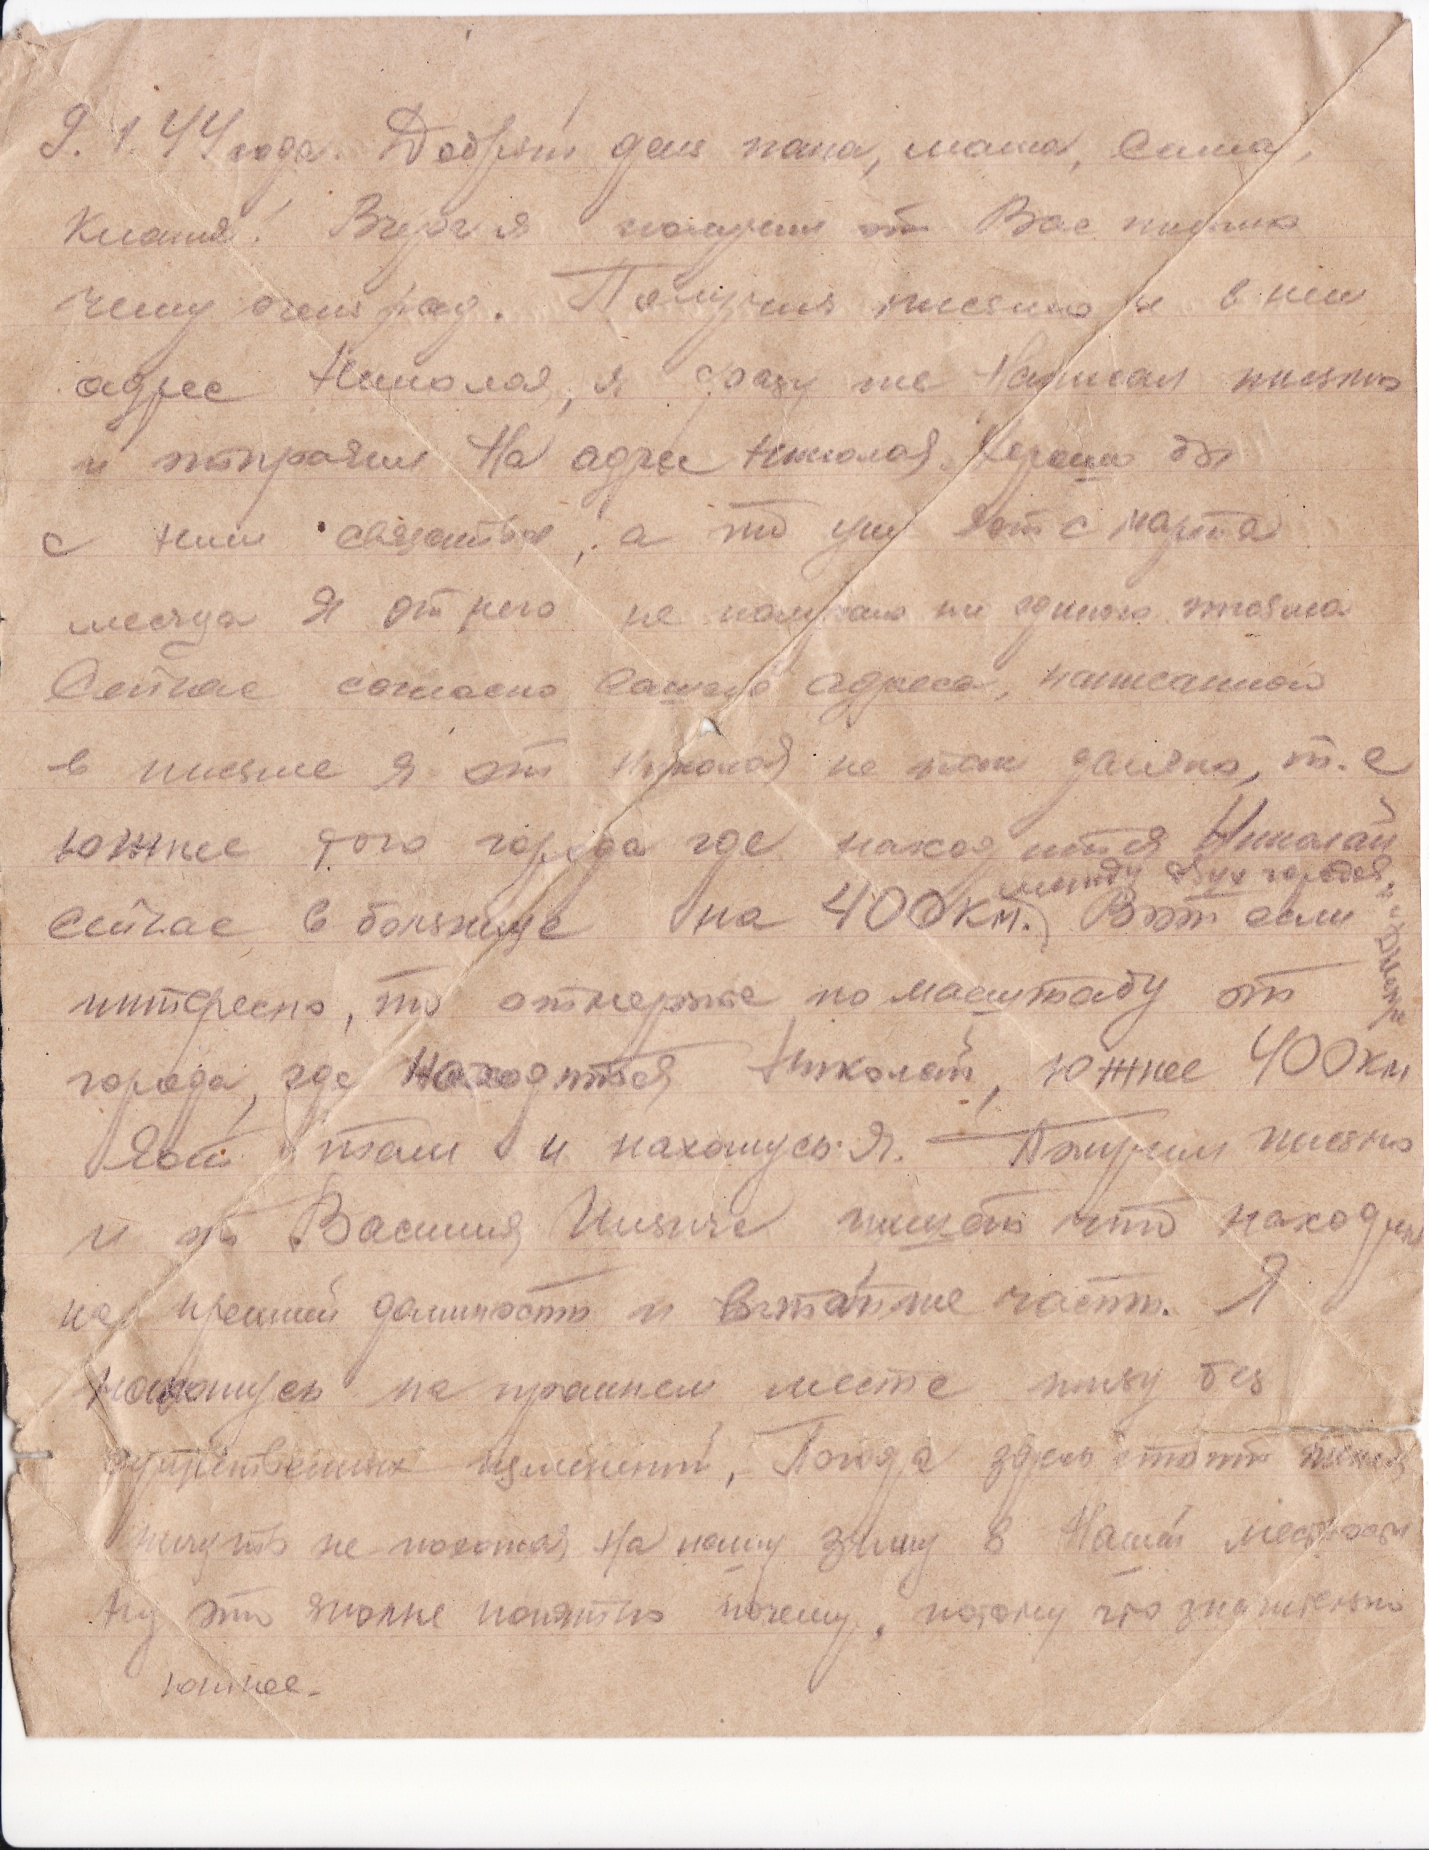 9.1.44 года. Добрый день папа, мама, Саша,
Клания! Вчера я получил от Вас письмо
чему очень рад. Получив письмо и в нем
адрес Николая, я сразу же написал письмо
и отправил на адрес Николая. Хорошо бы
с ним связаться, а то уже вот с марта
месяца я от него не получаю ни одного письма
Сейчас согласно Вашего адреса, написанной
в письме я от Николая не так далеко, т.е
южнее того города где находится Николай
между двух городов
сейчас в больнице на 400 км.) Вот если
интересно, то отмерьте по масштабу от
города, где находится Николай, южнее 400 км
Вот там и нахожусь я. – Получил письмо
и от Василия Ильича пишет что находит
на прежней должность и в той же части. Я
нахожусь на прежнем месте пишу без
существенных изменений, Погода здесь стоит
ничуть не похожая на нашу зиму в нашей местности
Ну это вполне понятно почему, потому что значительно
южнее.